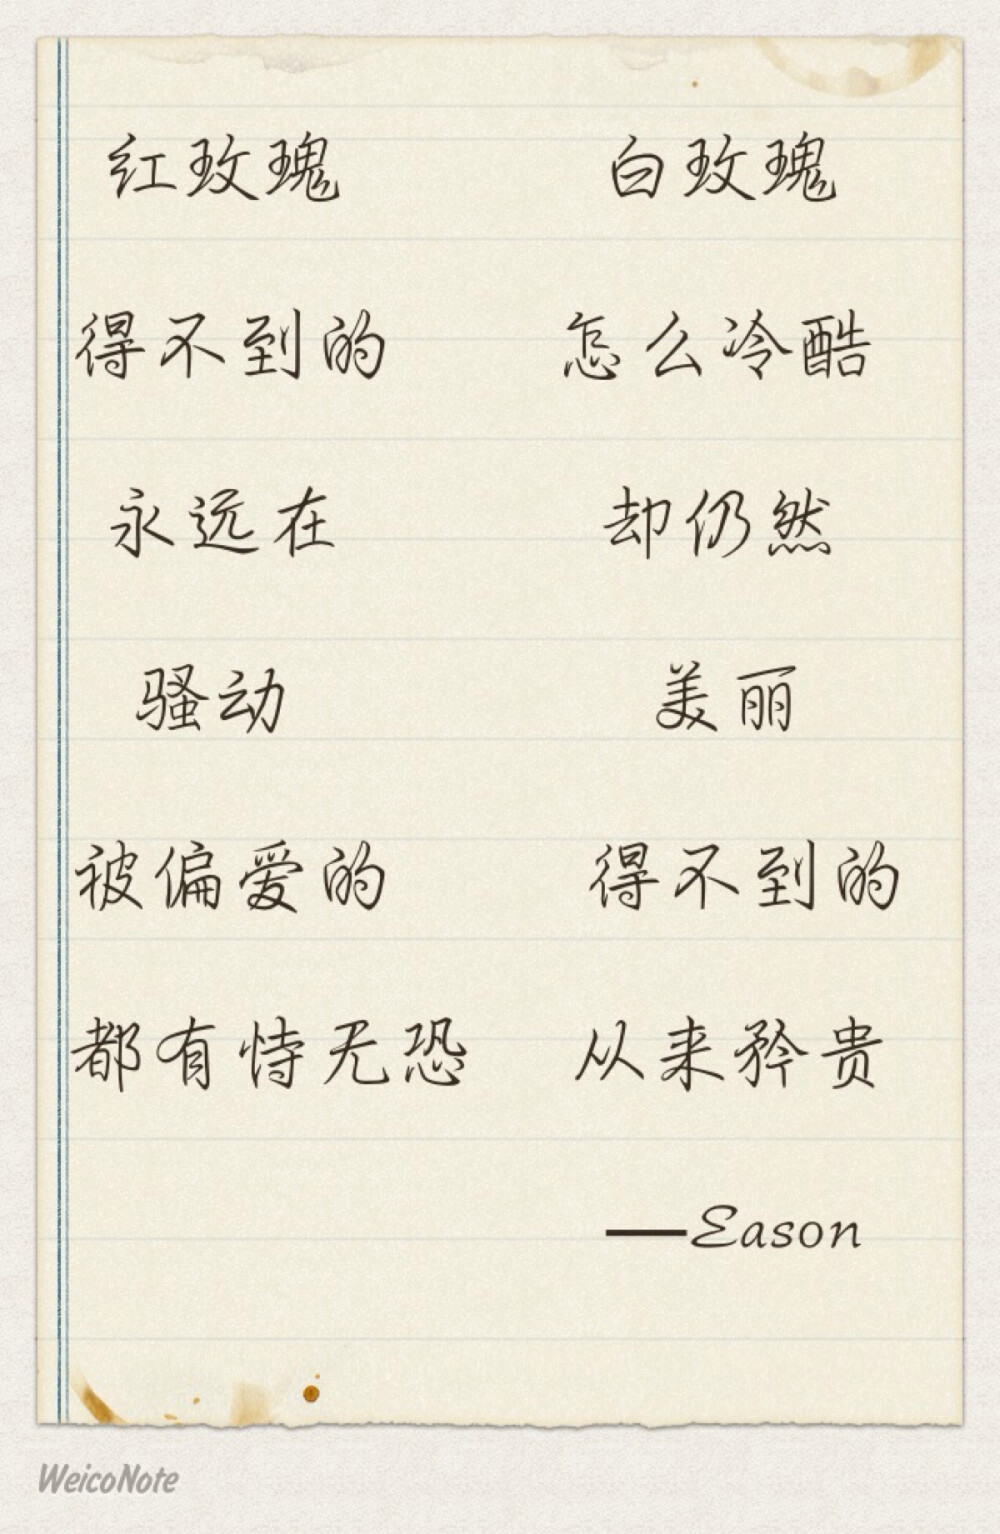 红玫瑰
得不到的
永远在
骚动
被偏爱的
都有恃无恐
白玫瑰
怎么冷酷
却仍然
美丽
得不到的
从来矜贵
——Eason
WeicoNote